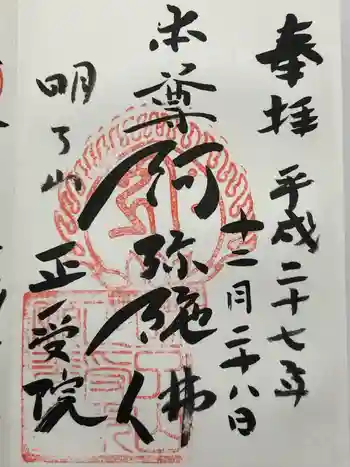 奉拝
平成二十七年
十二月二十八日
本尊
阿弥陀佛
明了山
正受院